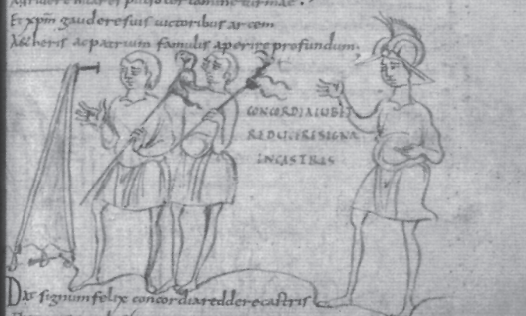 Et xpm gaudere suis victoribus arcem
Aetheris ac patrium famulis aperire profundum;
CONCORDIA IUBET
REDUCERE SIGNA
IN CASTRIS
Dat signum felix concordia reddere castris